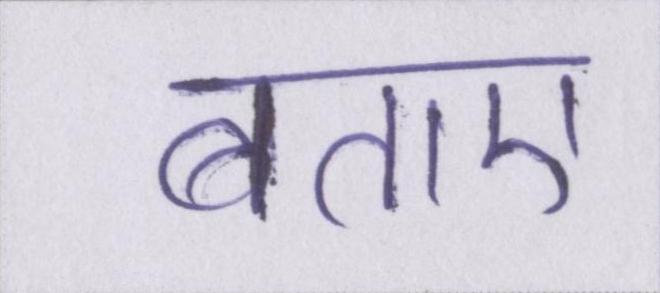 बताए